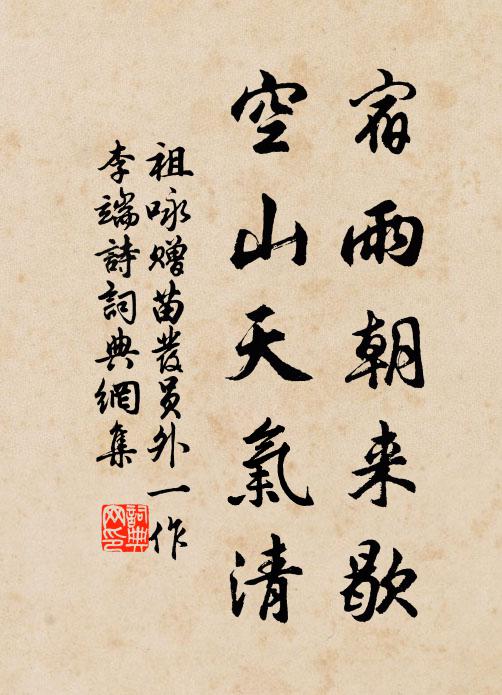 宿雨朝来歇
空山天氣清
祖咏贈苗發員外一作
李端詩詞典網集
詞典
网印